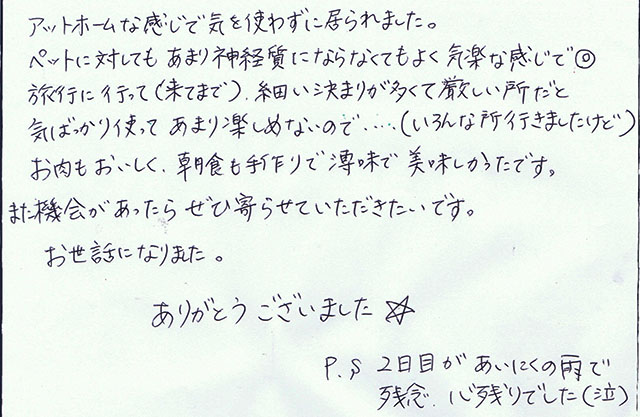 アットホームな感じで気を使わずに居られました。
ペットに対しても あまり神経質にならなくてもよく 気楽な感じで◎
旅行に行って(来てまで)、細い決まりが多くて厳しい所だと
気ばっかり使って あまり楽しめないので‥‥(いろんな所行きましたけど)
お肉もおいしく、朝食も手作りで薄味で 美味しかったです。
また機会があったら ぜひ寄らせていただきたいです。
お世話になりました。
ありがとう ございました☆
P.S 2日目が あいにくの雨で
残念。心残りでした(泣)